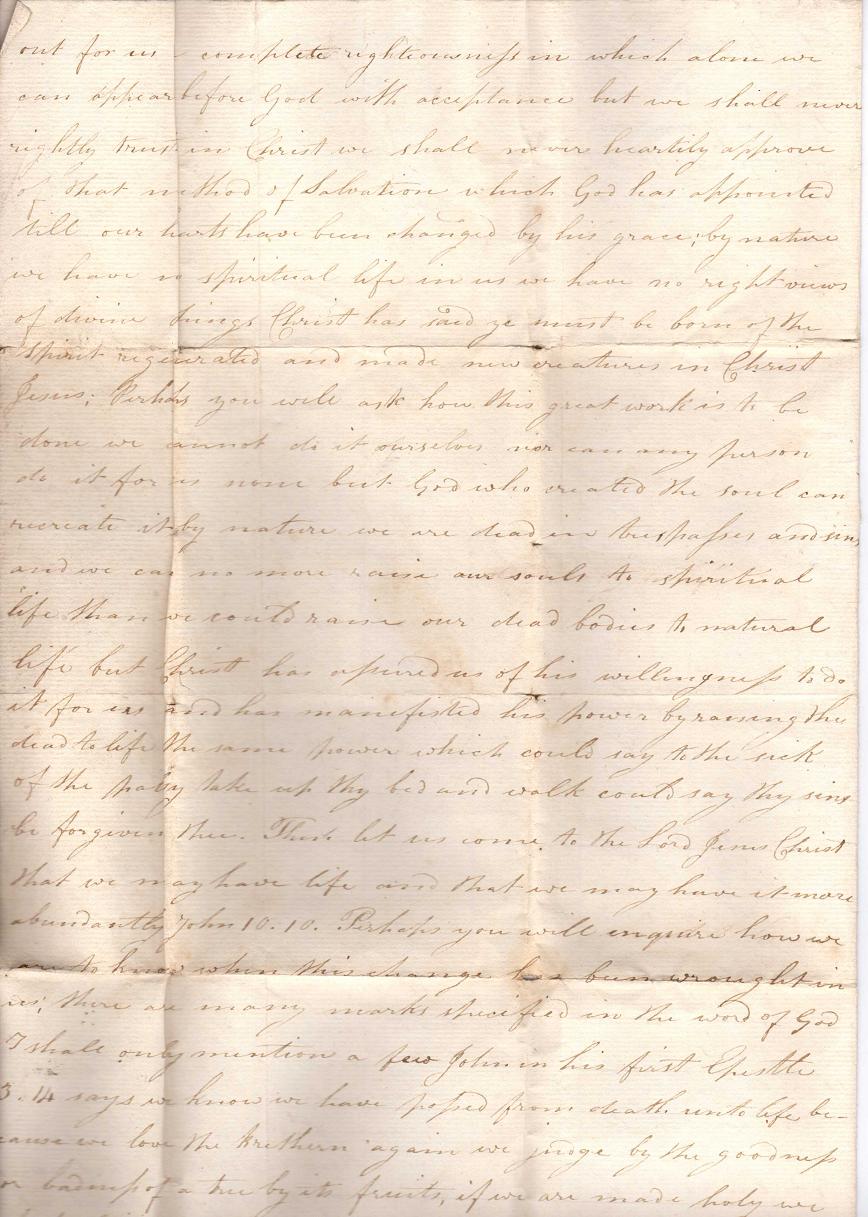 out for us a complete righteousness in which alone we
can appear before God with acceptance but we shall never
rightly trust in Christ we shall never heartily approve
of that method of Salvation which God has appointed
till our harts have been changed by his grace; by nature
we have no spiritual life in us we have no right views
of divine things Christ has said ye must be born of the
spirit regenerated and made new creatures in Christ
Jesus; Perhaps you will ask how this great work is to be
done we cannot do it ourselves nor can any person
do it for us none but God who created the soul can
recreate it by nature we are dead in trespasses and sins
and we can no more raise our souls to spiritual
life than we could raise our dead bodies to natural
life but Christ has assured us of his willingness to do
it for us and has manifisted his power by raising the
dead to life the same power which could say to the sick
of the palsy take up thy bed and walk could say thy sins
be forgiven thee. Then let us come to the Lord Jesus Christ
that we may have life and that we may have it more
abundantly John 10. 10. Perhaps you will enquire how we
are to know when this change has been wrought in
us; there are many marks specified in the word of God
I shall only mention a few John in his first Epistle
3. 14 says we know we have passed from death unto life be-
cause we love the brethern again we judge by the goodness
or badness of a tree by its fruits, if we are made holy we